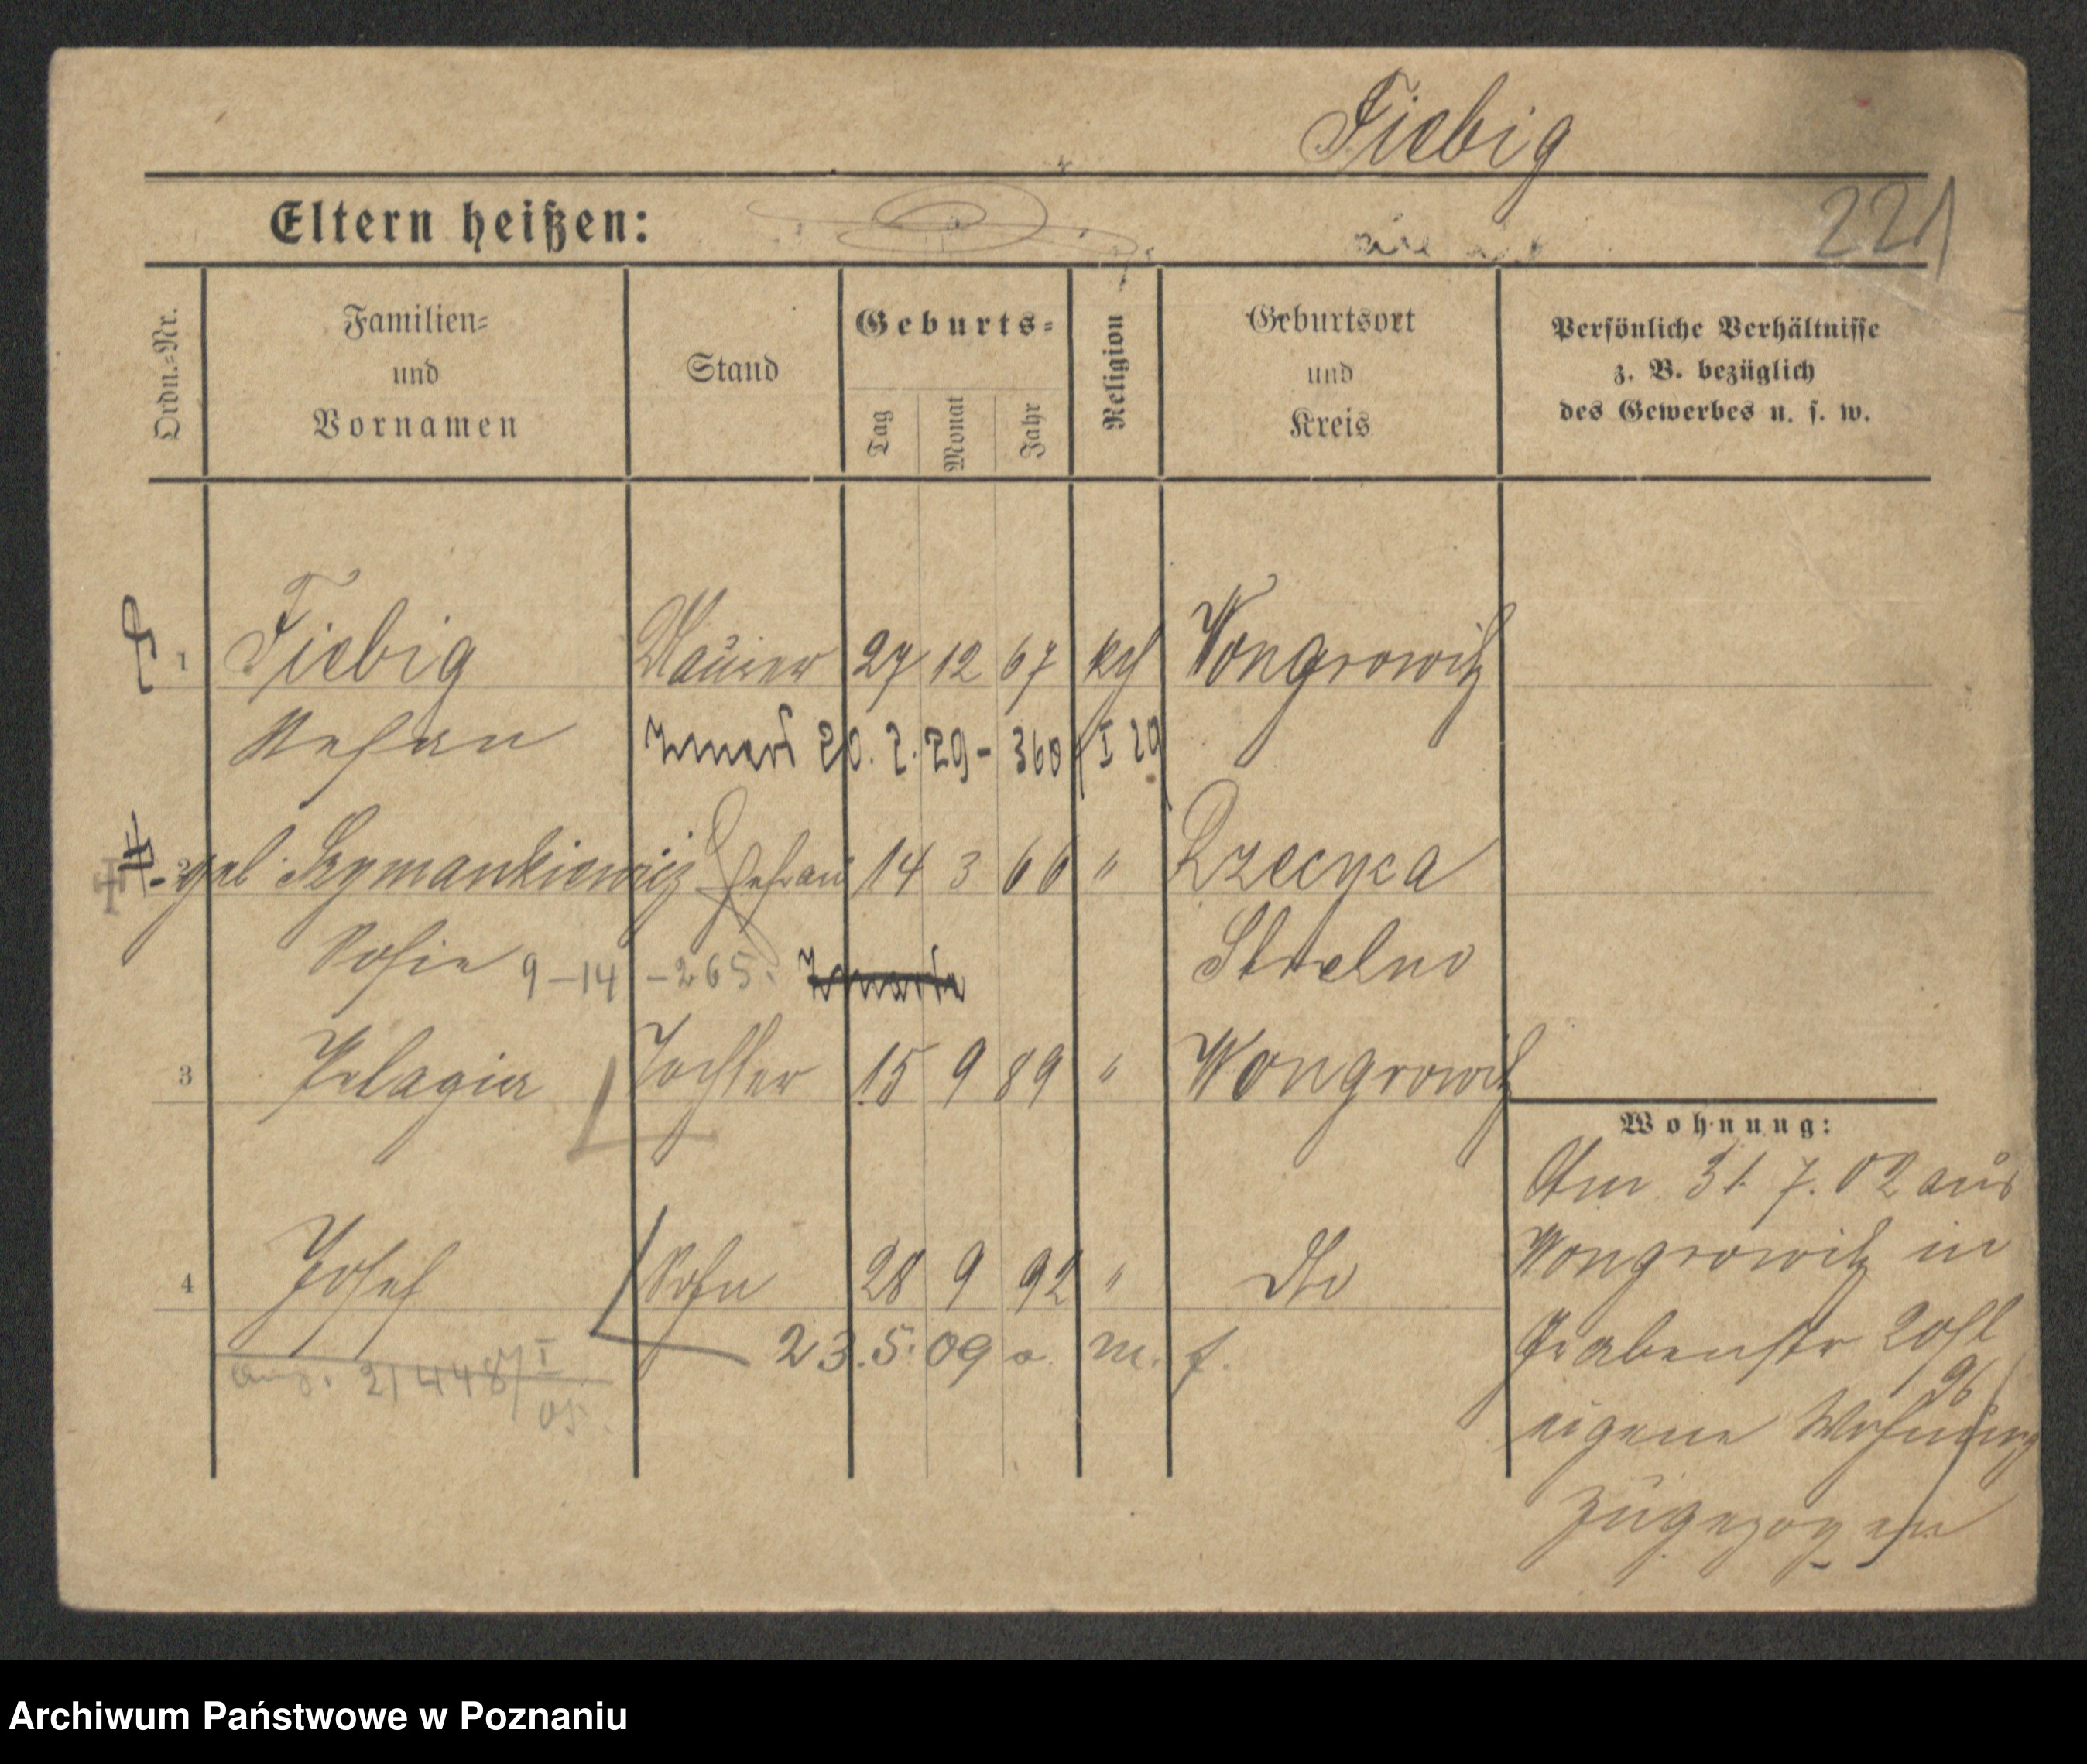 Fiebig
Eltern heißen:
221
Ordn.=Nr.
Familien=
und
Vornamen
Stand
Geburts=
Tag
Monat
Jahr
Religion
Geburtsort
und
Kreis
Persönliche Verhältnisse
z. B. bezüglich
des Gewerbes u. s. w.
1 Fiebig Maurer 27 12 67 kth Wongrowitz
Stefan Zmarł 20. 2. 29 - 360 / I 29
2 geb. Szymankiewicz Ehefrau 14 3 66 " Rzecyca
Sofie 9-14 -265. Strelno
3 Pelagia Tochter 15 9 89 " Wongrowitz
Wohnung:
Am 31. 7. 02 aus
Wongrowitz in
4 Josef Sohn 28 9 92 " dto
Grabenstr 20
23.5.09 a. m. f.
21448/I 05.
eigene Wohnung
zugezogen
Archiwum Państwowe w Poznaniu